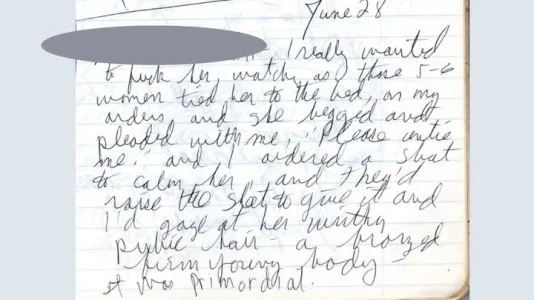 June 28
I really wanted
to fuck her, watch as those 5-6
women tied her to the bed, on my
orders and she begged and
pleaded with me, "Please untie
me." and I ordered a shot
to calm her, and they'd
raise the sheet to give it and
I'd gaze at her
pubic hair - a bronzed
firm young body -
it was primordial.